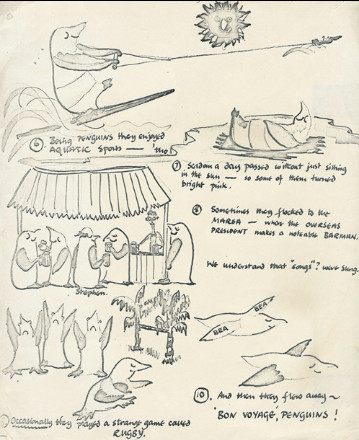 ⑥ Being PENGUINS they enjoyed
AQUATIC Sports — 'tho!
⑦ Seldom a day passed without just sitting
in the sun — so some of them turned
bright pink.
⑧ Sometimes they flocked to the
— where the OVERSEAS
PRESIDENT makes a noticable BARMAN.
We understand that "songs"? were sung.
Stephen.
BEA
BEA
Occasionally they played a strange game called
RUGBY.
⑩. And then they flew away —
'BON VOYAGE, PENGUINS!